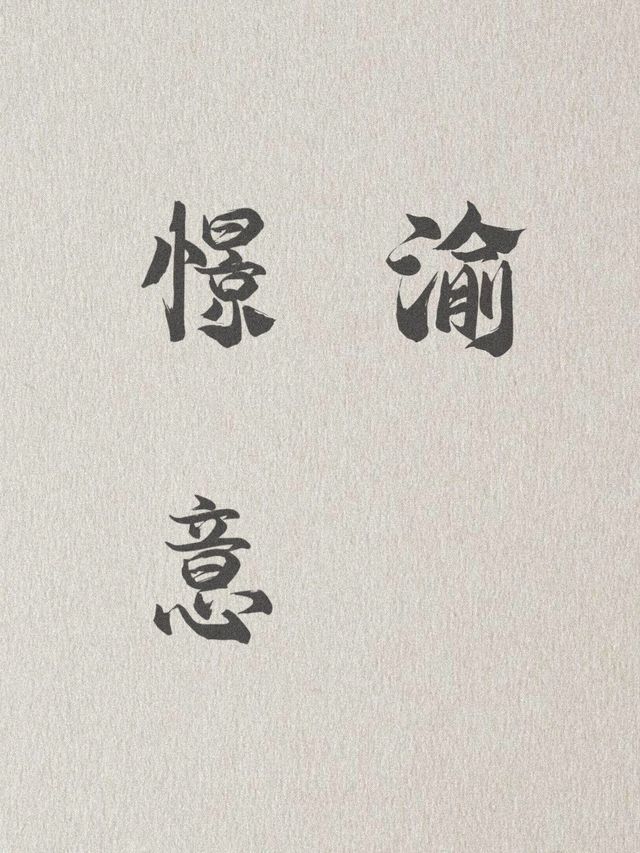 憬 渝
意